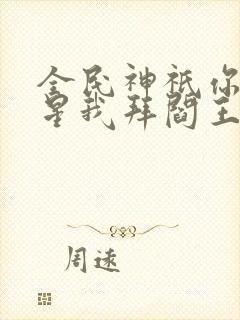 全民神祇你
星我拜阎王
周远